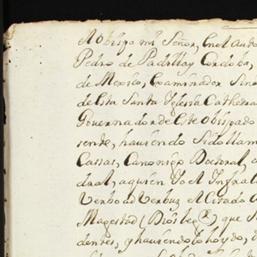 Arbispo mi Señor, En el Auto
Pedro de Padilla y Cordova,
de Mexico, Examinador Sino
de Esta Santa Iglesia Cathedra
Governador de Este obispado
sente, haviendo Sido llam
Cassas, Canonigo Doctoral, 
dral, aquien Yo el Infra
Verbo ad Verbum el Citado
Magestad (Dios le ) que S
dentes, y haviendolo hoydo,